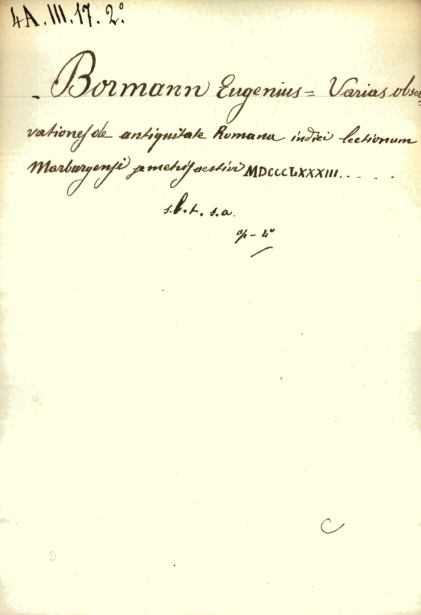 4A. III. 17. 2º
- Bormann Eugenius = Varias obser
vationes de antiquitate Romana indici lectionum
Marburgensi semetris aestivi MDCCCLXXXIII.....
s.l.t. s.a.
op - 4º
C